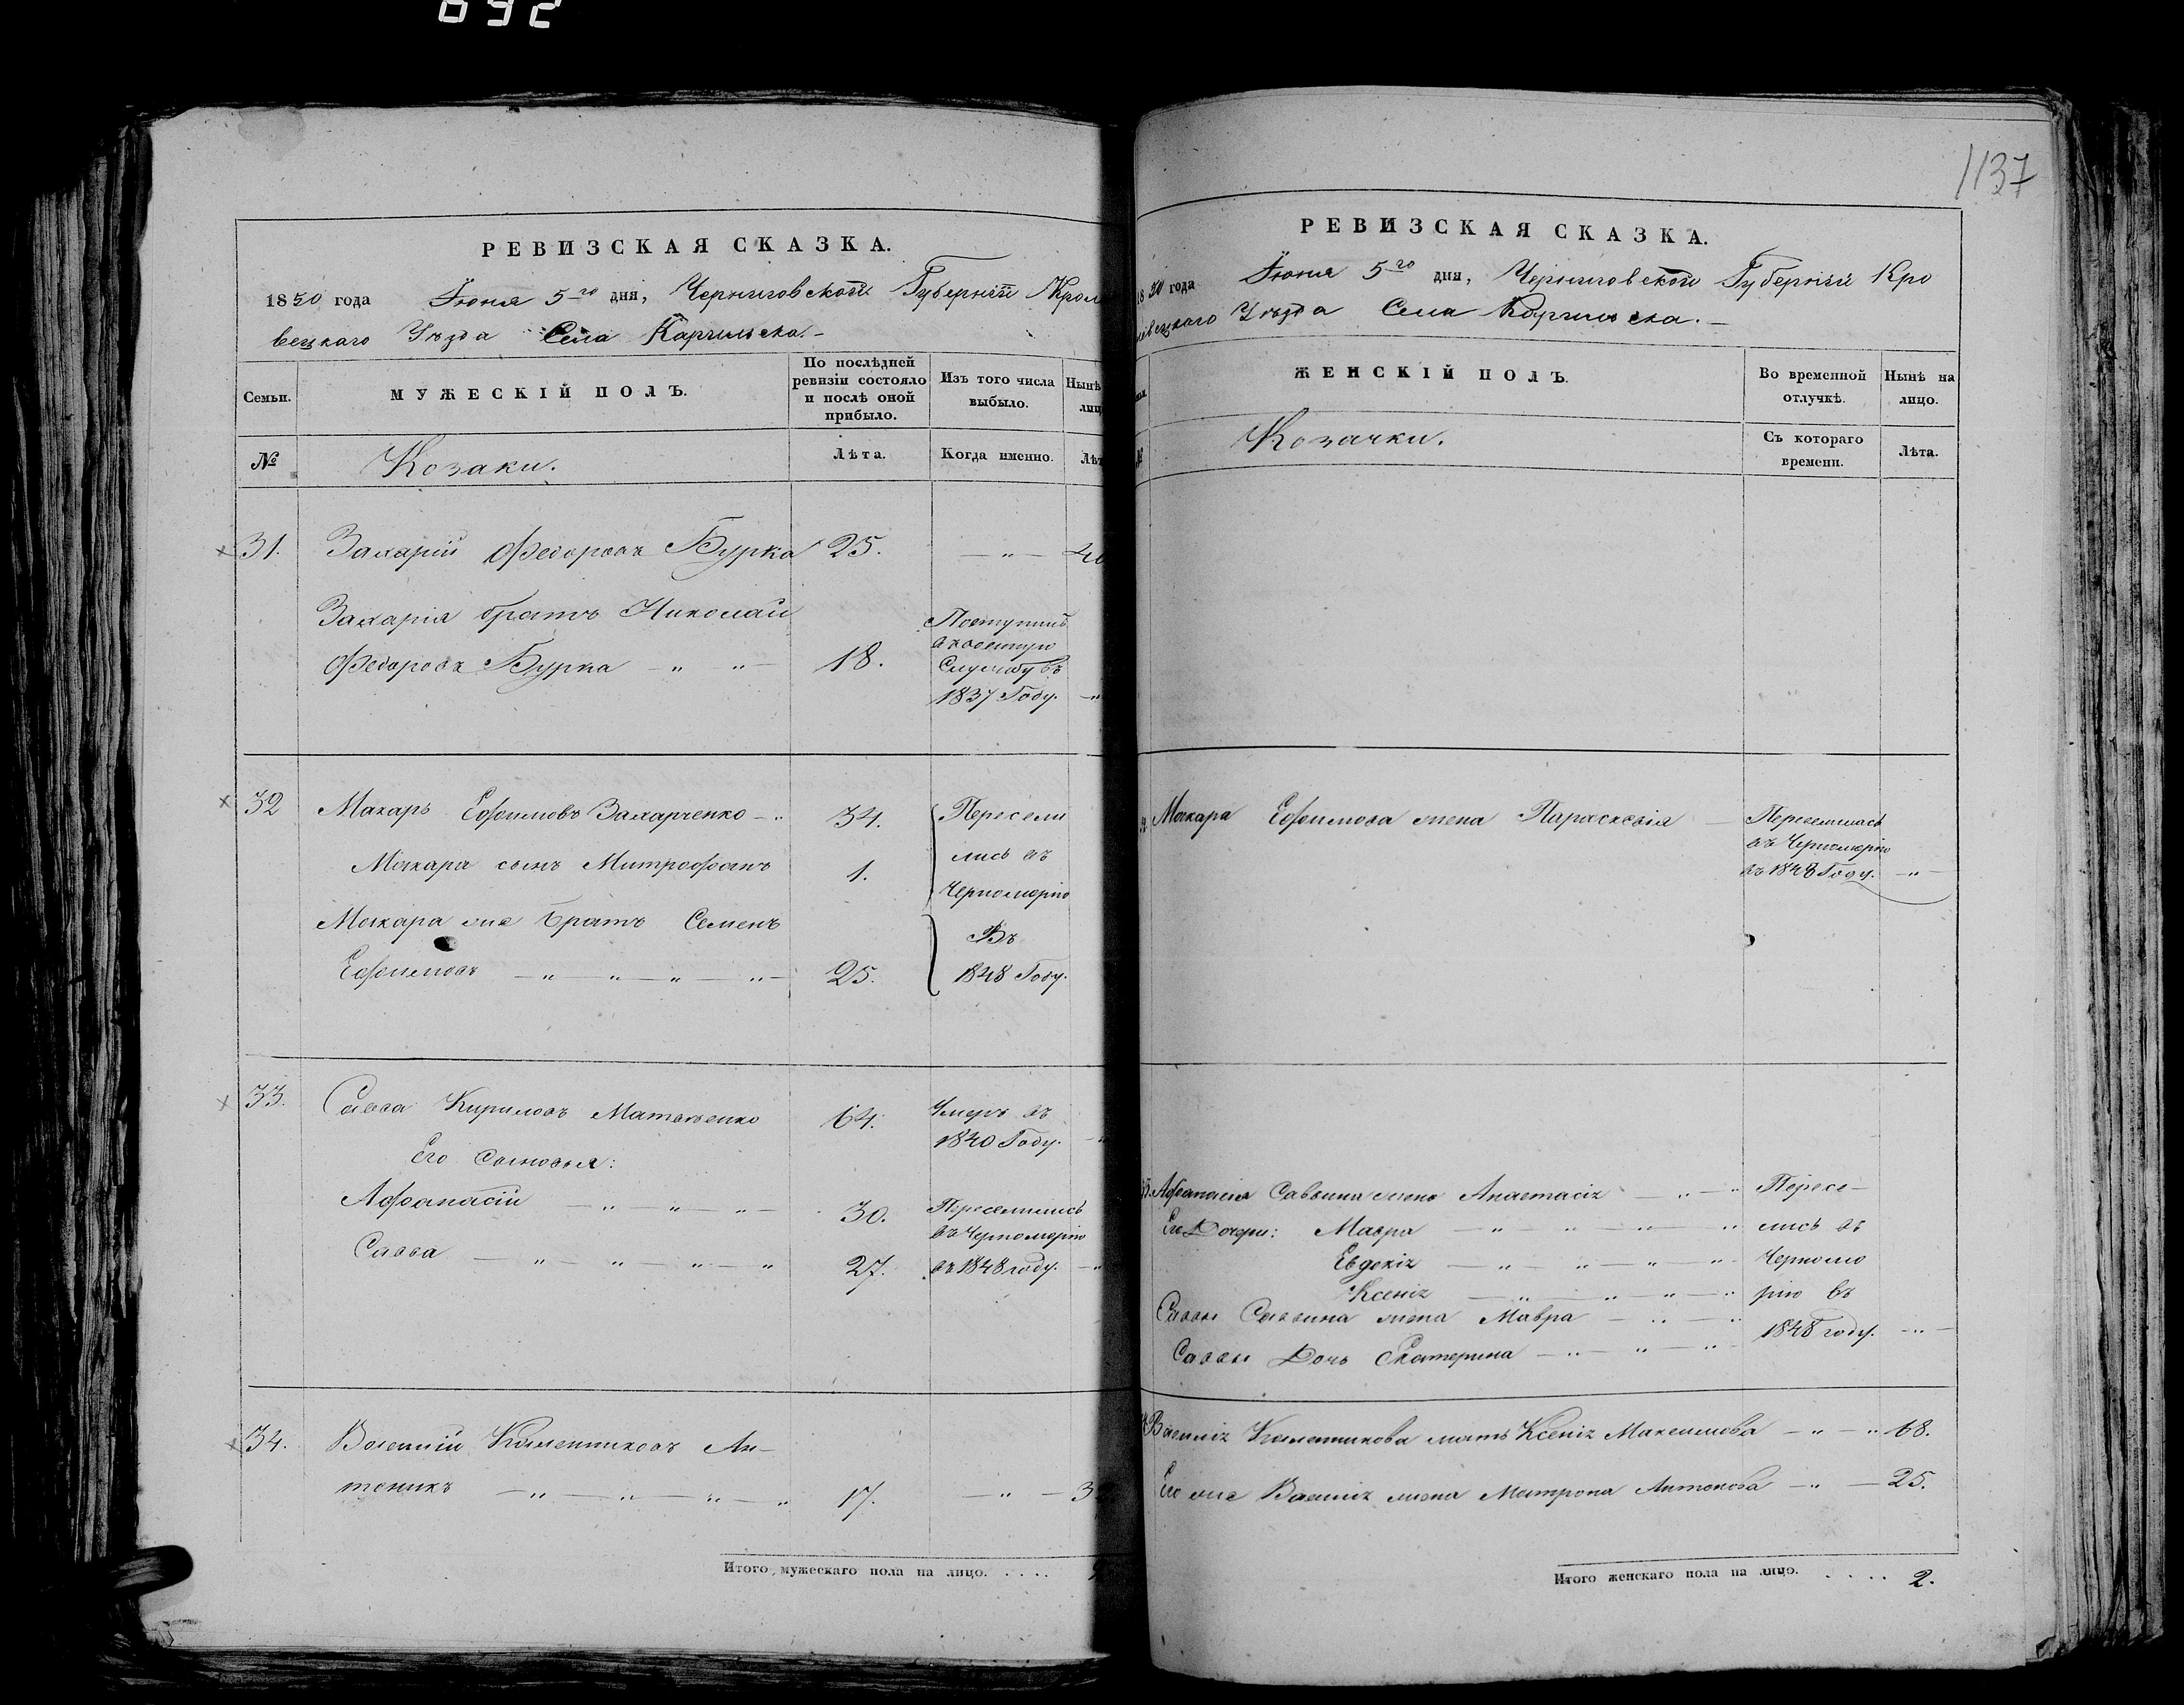 692
1137
РЕВИЗСКАЯ СКАЗКА.
1850 года Іюня 5го дня, Черниговской Губерніи Крол
вецкаго Уѣзда Села
Семьи.
МУЖЕСКІЙ ПОЛЪ.
По послѣдней ревизіи состояло и послѣ оной прибыло.
Изъ того числа выбыло.
Нынѣ
лиц
№
Козаки.
Лѣта.
Когда именно.
Лѣт
31. Захарій Федоровъ Бурка 25. — " —
Захарія братъ Николай
Федоровъ Бурка — " — " — 18.
Поступилъ
въ военную
Службу въ
1837 Году. — "
32 Макаръ Ефимовъ Захарченко — " 34.
Макара сынъ Митрофанъ 1.
Макара же братъ Семенъ
Ефимовъ — " — " — " — " — 25.
Пересели
лись въ
Черноморію
Въ
1848 Году.
33. Савва Кириловъ Матвѣенко 64.
Умеръ въ
1840 Году. — "
Его Сыновья:
Афанасій — " — " — " — 30.
Савва — " — " — " — " 27.
Переселились
въ Черноморію
въ 1848 году. — "
34. Василій Климентиковъ Ан-
тоникъ — " — " — " — " 17. — " — 3
Итого мужескаго пола на лицо. . . . .
РЕВИЗСКАЯ СКАЗКА.
1850 года Іюня 5го дня, Черниговской Губерніи Кро
левецкаго Уѣзда Села
ЖЕНСКІЙ ПОЛЪ.
Во временной отлучкѣ.
Нынѣ на лицо.
№
Козачки.
Съ котораго времени.
Лѣта.
Макара Ефимова жена Параскевія —
Переселилась
въ Черноморію
въ 1848 Году. — " —
Афанасія Саввина жена Анастасія — " — "
Его Дочери: Мавра — " — " — " — "
Евдокія — " — " — " — "
Ксенія — " — " — " — "
Саввы Саввина жена Мавра — " — "
Саввы Дочь Екатерина — " — " — "
Пересе-
лись въ
Черномо
рію въ
1848 году. — " —
Василія Климентикова мать Ксенія Максимова — " — " 68.
Его же Василія жена Матрона Антонова — " — 25.
Итого женскаго пола на лицо. . . . . 2.